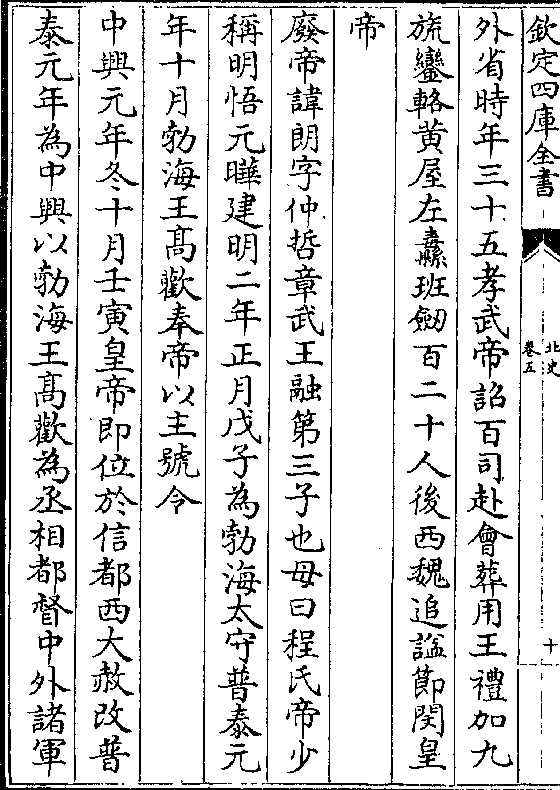 欽定四庫全書
北史
卷五
十
外省時年三十五孝武帝詔百司赴會葬用王禮加九
旒鑾輅黄屋左纛班劒百二十人後西魏追諡節閔皇
帝
廢帝諱朗字仲哲章武王融第三子也母曰程氏帝少
稱明悟元曄建明二年正月戊子為勃海太守普泰元
年十月勃海王髙歡奉帝以主號令
中興元年冬十月壬寅皇帝即位於信都西大赦改普
泰元年為中興以勃海王髙歡為丞相都督中外諸軍